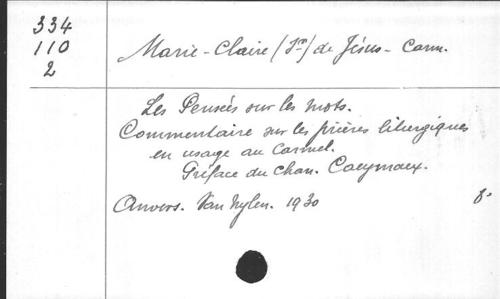 334
110
2
Marie-Claire (Sr) de Jésus - Carm.
Les Pensées sur les mots.
Commentaire sur les prières liturgiques
en usage au Carmel.
Préface du Chan. Caeymaex.
Anvers. Van Nylen. 1930
8.